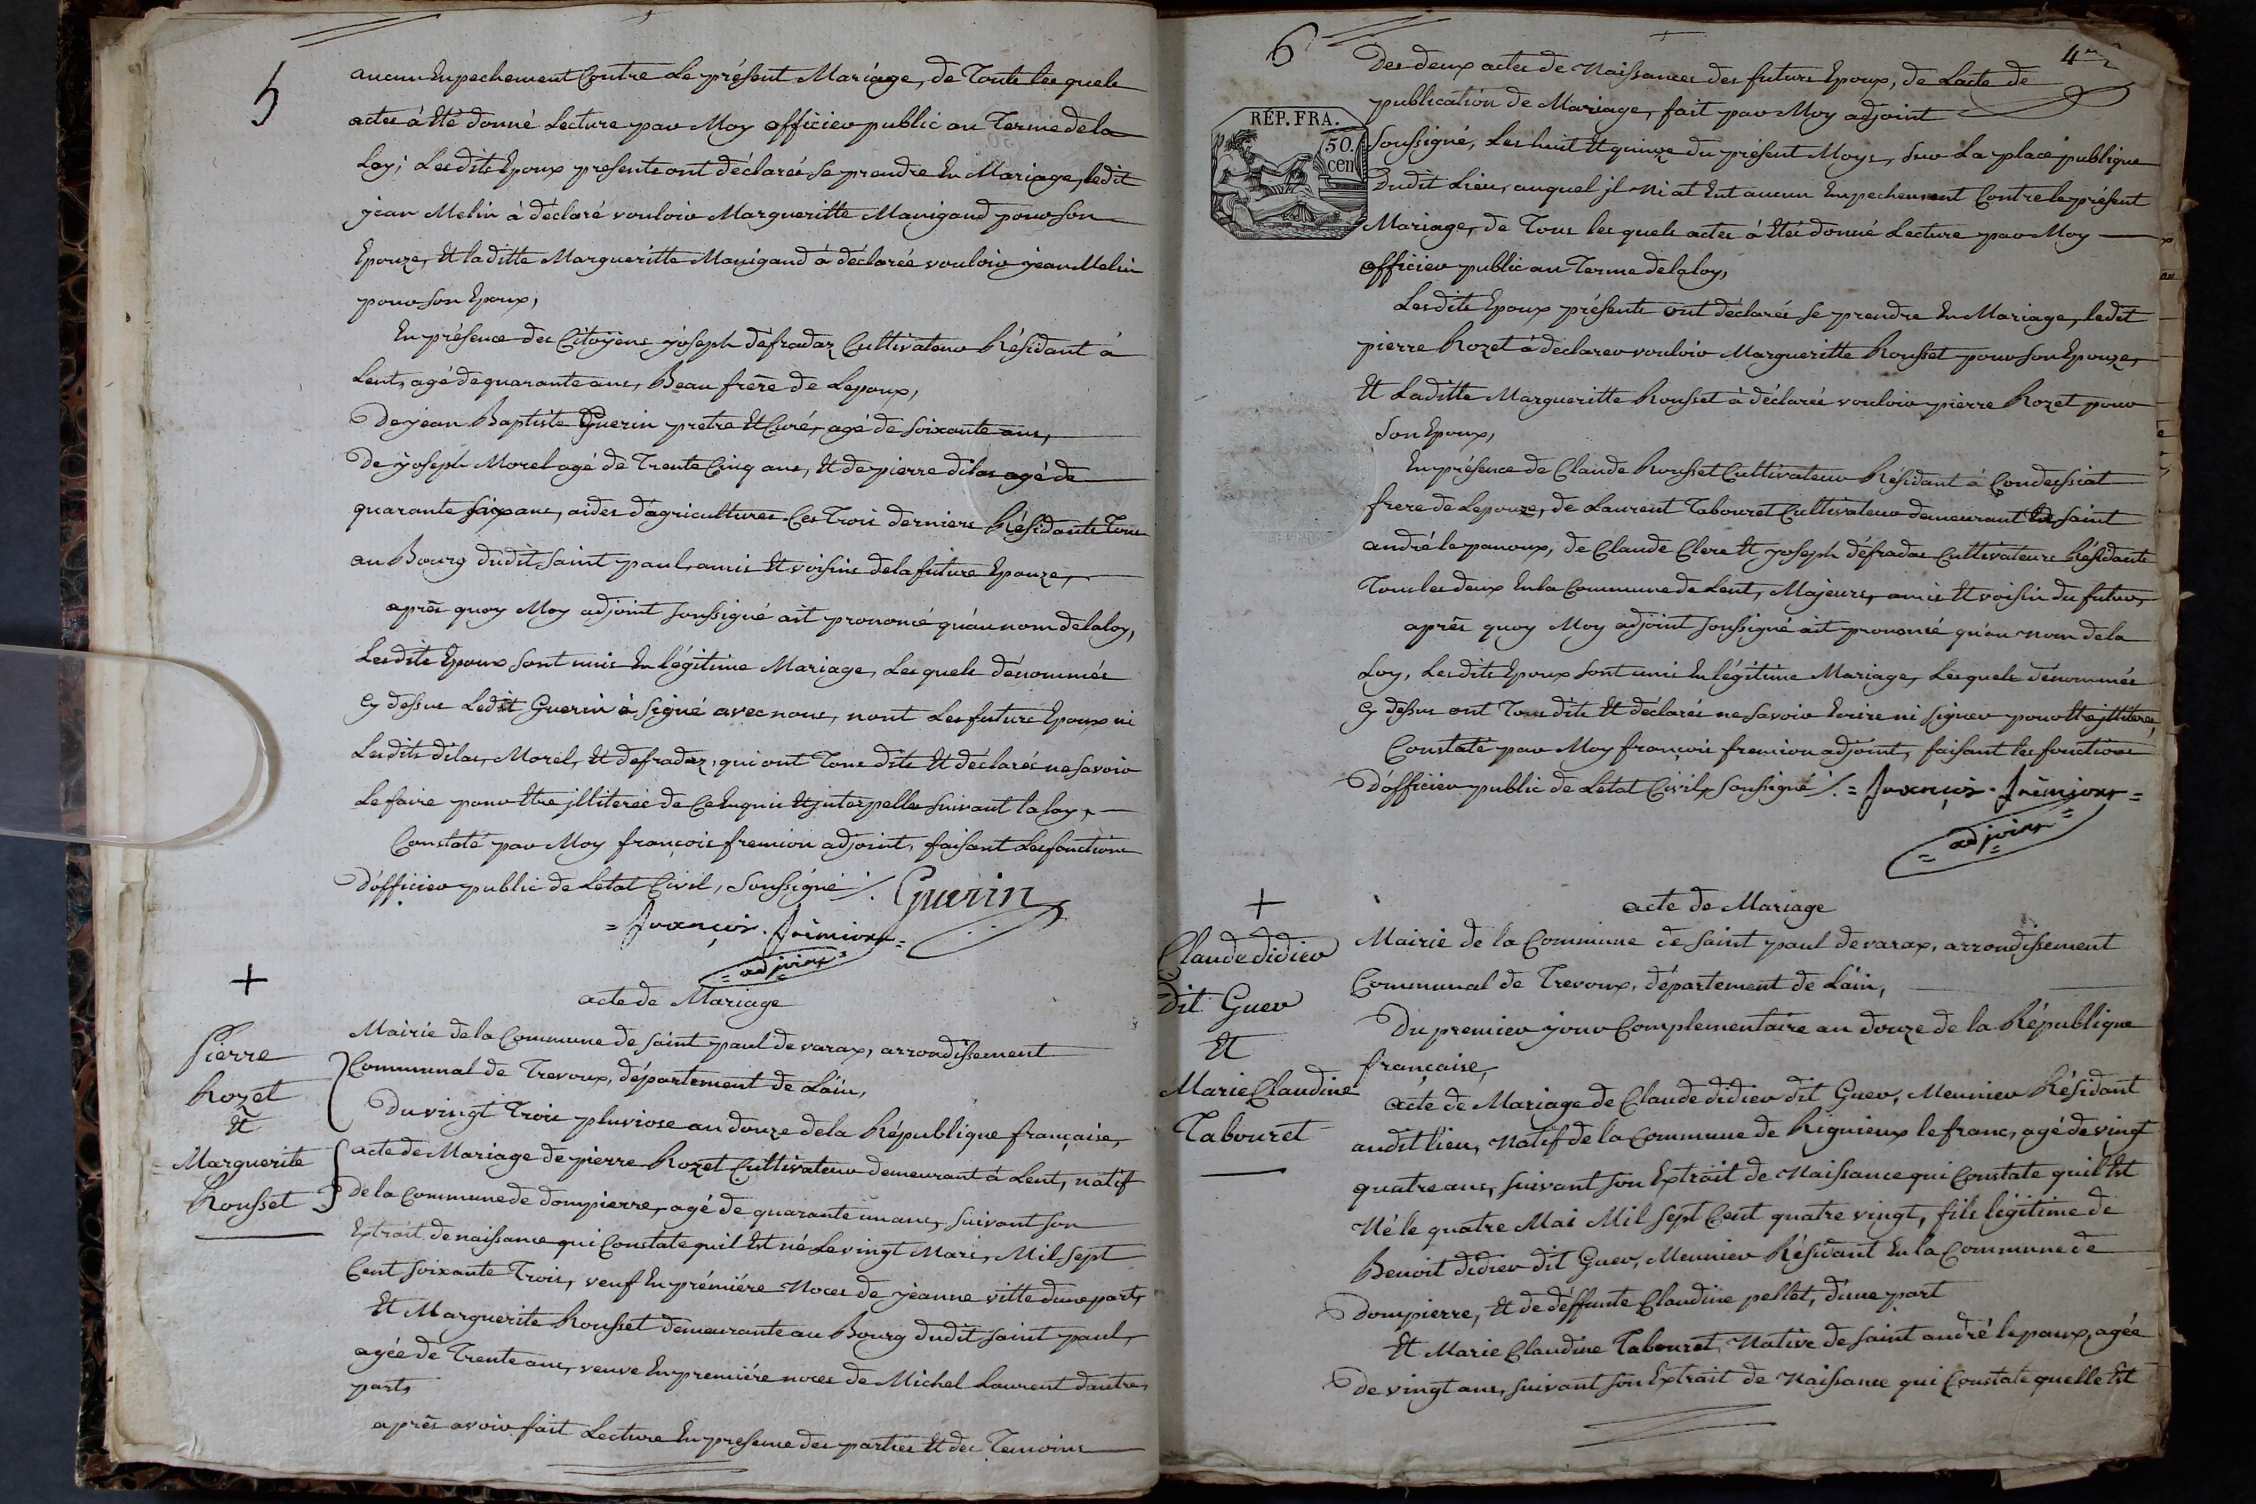 5
aucun Enpechement Contre Le présent Mariage, de Touts les quels
actes à Eté donné Lecture par Moy officier public au Terme de la
Loy; Lesdits Epoux presents ont déclarés se prendre En Mariage, ledit
jean Melin à déclaré vouloir Margueritte Manigand pour son
Epouze, Et laditte Margueritte Manigand à déclarée vouloir jean Melin
pour son Epoux,
En présence des Citoÿens joseph défradaz Cultivateur Résidant à
Lent, agé de quarante ans, Beau frère de Lepoux,
De jean Baptiste Guerin pretre Et Curé, agé de soixante ans,
De joseph Morel agé de Trente Cinq ans, Et de pierre dilas agé de
quarante six ans, aides d'agricultures Ces Trois derniers Résidants Tous
au Bourg dudit Saint paul, amis Et voisins de la future Epouze,
après quoy Moy adjoint soussigné ait prononcé qu'au nom de la loy,
Lesdits Epoux sont unis En légitime Mariage, Lesquels dénommés
Cy dessus Ledit Guerin à signé avec nous, nont Les futurs Epoux ni
Lesdits dilas, Morel, Et defradaz, qui ont Tous dits Et déclarés ne savoir
Le faire pour Etre jlliterés de Ce Enquis Et jnterpellés suivant la loy,
Constaté par Moy françois fremion adjoint, faisant Les fonctions
D'officier public de Letat Civil, Soussigné /. Guerin
= françois . frèmion =
= adjoint =
+
acte de Mariage
Pierre
Rozet
Et
Marguerite
Rousset
Mairie de la Commune de Saint paul de varax, arrondissement
Communal de Trevoux, département de Laïn,
Du vingt Trois pluviose an douze de la République française,
acte de Mariage de pierre Rozet Cultivateur demeurant à Lent, natif
de la Commune de dompierre, agé de quarante un ans, suivant son
Extrait de naissance qui Constate quil Est né Le vingt Mars, Mil sept
Cent soixante Trois, veuf En prémiére Noces de jeanne ville d'une part,
Et Marguerite Rousset demeurante au Bourg dudit saint paul,
agée de Trente ans, veuve En premiére noces de Michel Laurent d'autre
part,
après avoir fait Lecture En presence des parties Et des Temoins
6
4
Des deux actes de Naissances des futurs Epoux, de Lacte de
publication de Mariage, fait par Moy adjoint
RÉP. FRA.
50.
cen
Soussigné, Les huit Et quinze du présent Moys, sur La place publique
Dudit Lieu, auquel jl Ni at Eut aucun Empechement Contre le présent
Mariage, de Tous les quels actes à Etés donné Lecture par Moy
officier public au Terme de la loy,
Lesdits Epoux présents ont déclarés se prendre En Mariage, ledit
pierre Rozet à déclarer vouloir Margueritte Rousset pour son Epouze,
Et Laditte Margueritte Rousset à déclarée vouloir pierre Rozet pour
Son Epoux,
En présence de Claude Rousset Cultivateur Résidant à Condeissiat
frere de Lepouze, de Laurent Tabouret Cultivateur demeurant saint
andré le panoux, de Claude Clere Et joseph défradas Cultivateurs Résidants
Tous les deux En la Commune de Lent, Majeurs, amis Et voisin du futur,
après quoy Moy adjoint soussigné ait prononcé qu'au nom de la
Loy, Lesdits Epoux sont unis En légitime Mariage, Lesquels dénommés
Cy dessus ont Tous dits Et déclarés ne savoir Ecrire ni signer pour Etre jlliterés,
Constaté par Moy françois fremion adjoint, faisant les fonctions
D'officier public de Létat Civil, soussigné /. = françois . frèmion =
= adjoint =
+
acte de Mariage
Claude didier
dit Guer
Et
Marie Claudine
Tabouret
Mairie de la Commune de Saint paul de varax, arrondissement
Communal de Trevoux, département de Láin,
Du premier jour Complementaire an douze de la République
française,
acte de Mariage de Claude didier dit Guer, Meunier Résidant
audit lieu, Natif de la Commune de Rignieux le franc, agé de vingt
quatre ans, suivant son Extrait de Naissance qui Constate quil Est
Né le quatre Mai Mil sept Cent quatre vingt, fils légitime de
Benoit didier dit Guer, Meunier Résidant En la Commune de
Dompierre, Et de déffunte Claudine pellet, d'une part
Et Marie Claudine Tabouret, Native de saint andré le panx, agée
De vingt ans, suivant son Extrait de Naissance qui Constate quelle Est